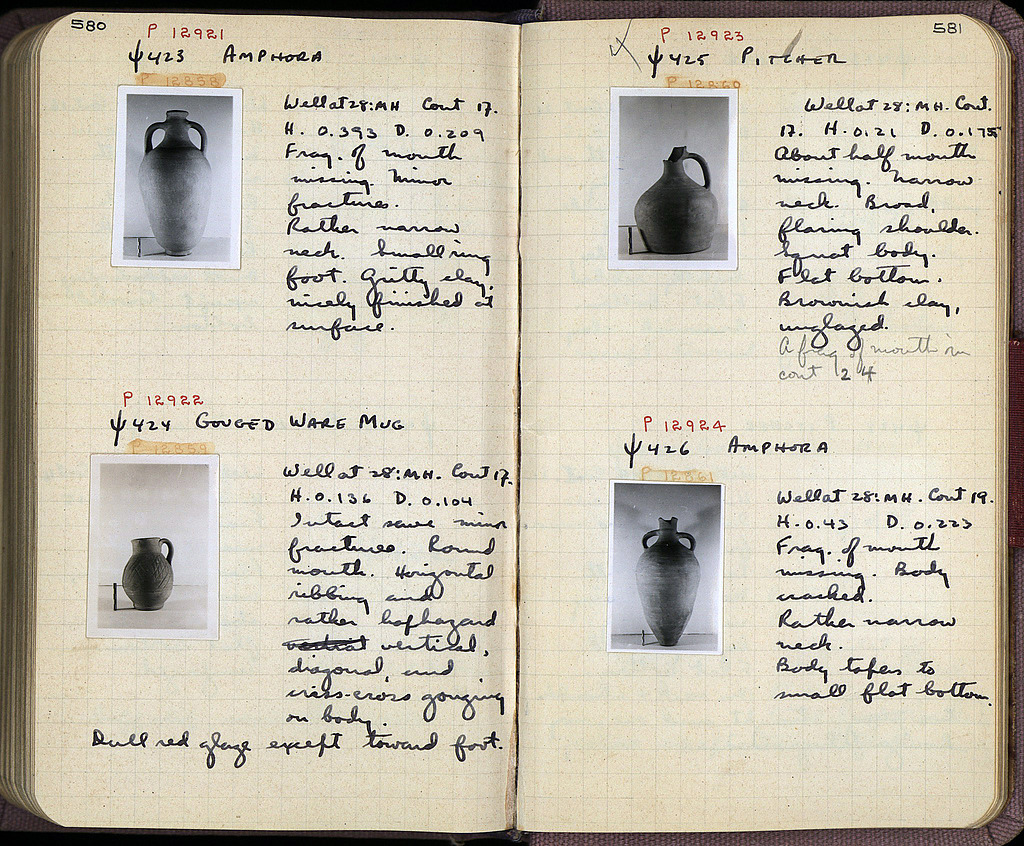 580
P 12921
ψ423 AMPHORA
P 12858
Well at 28:MH Cont 17.
H. 0.393 D. 0.209
Frag. of mouth
missing. Minor
fractures.
Rather narrow
neck. Small ring
foot. Gritty clay,
nicely finished at
surface.
P 12922
ψ424 GOUGED WARE MUG
P 12859
Well at 28:MH. Cont 17.
H. 0.136 D. 0.104
Intact save minor
fractures. Round
mouth. Horizontal
ribbing and
rather haphazard
vertical,
diagonal, and
criss-cross gouging
on body.
Dull red glaze except toward foot.
581
P 12923
ψ425 PITCHER
P 12860
Well at 28: MH. Cont.
17. H. 0.21 D. 0.175
About half mouth
missing. Narrow
neck. Broad,
flaring shoulder.
Squat body.
Flat bottom.
Brownish clay,
unglazed.
A frag of mouth in
cont 24
P 12924
ψ426 AMPHORA
P 12861
Well at 28: MH. Cont 19.
H. 0.43 D. 0.223
Frag. of mouth
missing. Body
cracked.
Rather narrow
neck.
Body tapers to
small flat bottom.